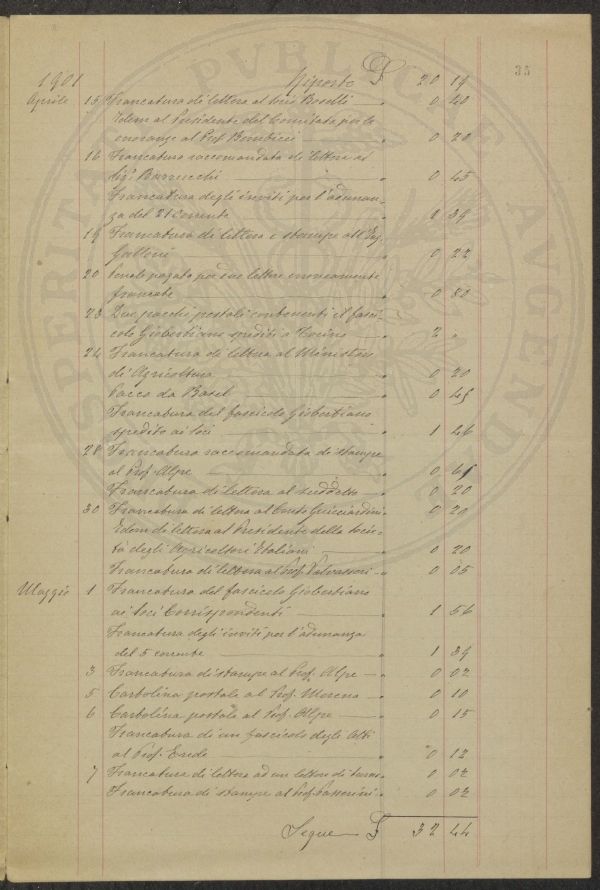 PROSPERITATI PVBLICAE AVGENDAE
35
1901 Riporto £ 20 19
Aprile 15 Francatura di lettera al Socio Boselli " 0 40
Idem al Presidente del Comitato per le
onoranze al Prof. " 0 20
16 Francatura raccomandata di lettera al
Sig. " 0 45
Francatura degli inviti per l'adunan-
za del 21 corrente " 1 39
19 Francatura di lettera e stampe all'Ing.
" 0 22
20 pagata per due lettere
francate " 0 80
23 Due pacchi postali contenenti il fasci-
colo Giobertiano spediti a Torino " 2 "
24 Francatura di lettera al Ministero
di Agricoltura " 0 20
Pacco da Basel " 0 45
Francatura del fascicolo Giobertiano
spedito ai soci " 1 46
28 Francatura raccomandata di stampe
al Prof. Alpe " 0 65
Francatura di lettera al suddetto " 0 20
30 Francatura di lettera al Conte Guicciardini " 0 20
Idem di lettera al Presidente della Socie-
tà degli Agricoltori Italiani " 0 20
Francatura di lettera al Prof. Valvassori " 0 05
Maggio 1 Francatura del fascicolo Giobertiano
ai Soci Corrispondenti " 1 56
Francatura degli inviti per l'adunanza
del 5 corrente " 1 39
3 Francatura di stampe al Prof. Alpe " 0 02
5 Cartolina postale al Prof. Morena " 0 10
6 Cartolina postale al Prof. Alpe " 0 15
Francatura di un fascicolo degli Atti
al Prof. Erede " 0 12
7 Francatura di lettera ad un " 0 02
Francatura di stampe al Prof. Passerini " 0 02
Segue £ 32 44